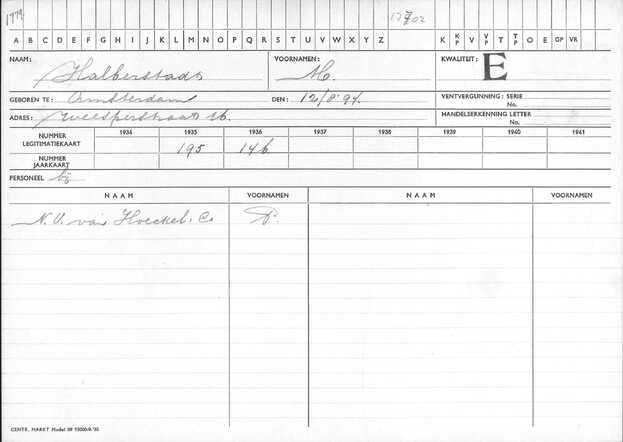 1779
A B C D E F G H I J K L M N O P Q R S T U V W X Y Z K KP V VP T TP O E GP VR
NAAM: Halberstads VOORNAMEN: M. KWALITEIT: E
GEBOREN TE: Amsterdam DEN: 12/8'94. VENTVERGUNNING: SERIE
No.
ADRES: Weesperstraat 16. HANDELSERKENNING LETTER
No.
NUMMER LEGITIMATIEKAART 1934 1935 1936 1937 1938 1939 1940 1941
195 146
NUMMER JAARKAART
PERSONEEL bij
NAAM VOORNAMEN NAAM VOORNAMEN
N.V. van Hoeckel. Co P.
CENTR. MARKT Model 09 15000-9-'35